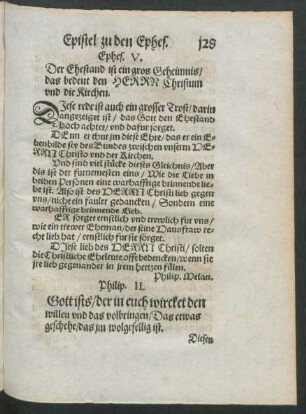 Epistel zu den Ephes. 129
Ephes. V.
Der Ehestand ist ein gros Geheimnis/
das bedeut den HERRN Christum
vnd die Kirchen.
DJese rede ist auch ein grosser Trost/ darin
angezeiget ist/ das Gott den Ehestand
hoch achtet/ vnd dafur sorget.
DEnn er thut jm diese Ehre/ das er ein E-
benbilde sey des Bundes zwischen vnserm HE-
RRN Christo vnd der Kirchen.
Vnd sind viel stücke dieses Gleichnis/ Aber
dis ist der furnemesten eins/ Wie die Liebe in
beiden Personen eine warhafftige brünnende lie-
be ist. Also ist des HERRN Christi lieb gegen
vns/ nicht ein fauler gedancken/ Sondern eine
warhafftige brünnende Lieb.
ER sorget ernstlich vnd trewlich fur vns/
wie ein trewer Eheman/ der seine Hausfraw re-
cht lieb hat/ ernstlich fur sie sorget.
DJese lieb des HERRN Christi/ solten
die Christliche Eheleute offt bedencken/ wenn sie
jre lieb gegenander in jrem hertzen fülen.
Philip. Melan.
Philip. II.
Gott ists/ der in euch wircket den
willen vnd das volbringen/ Das etwas
geschehe/ das jm wolgefellig ist.
Diesen